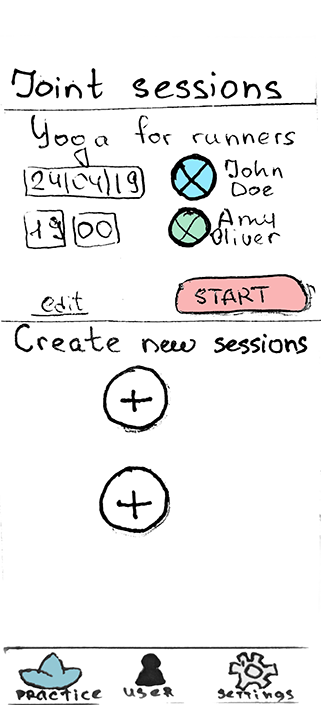 Joint sessions
Yoga for runners
24/04/19
John
Doe
19 00
Amy
Oliver
edit
START
Create new sessions
+
+
PRACTICE USER SETTINGS